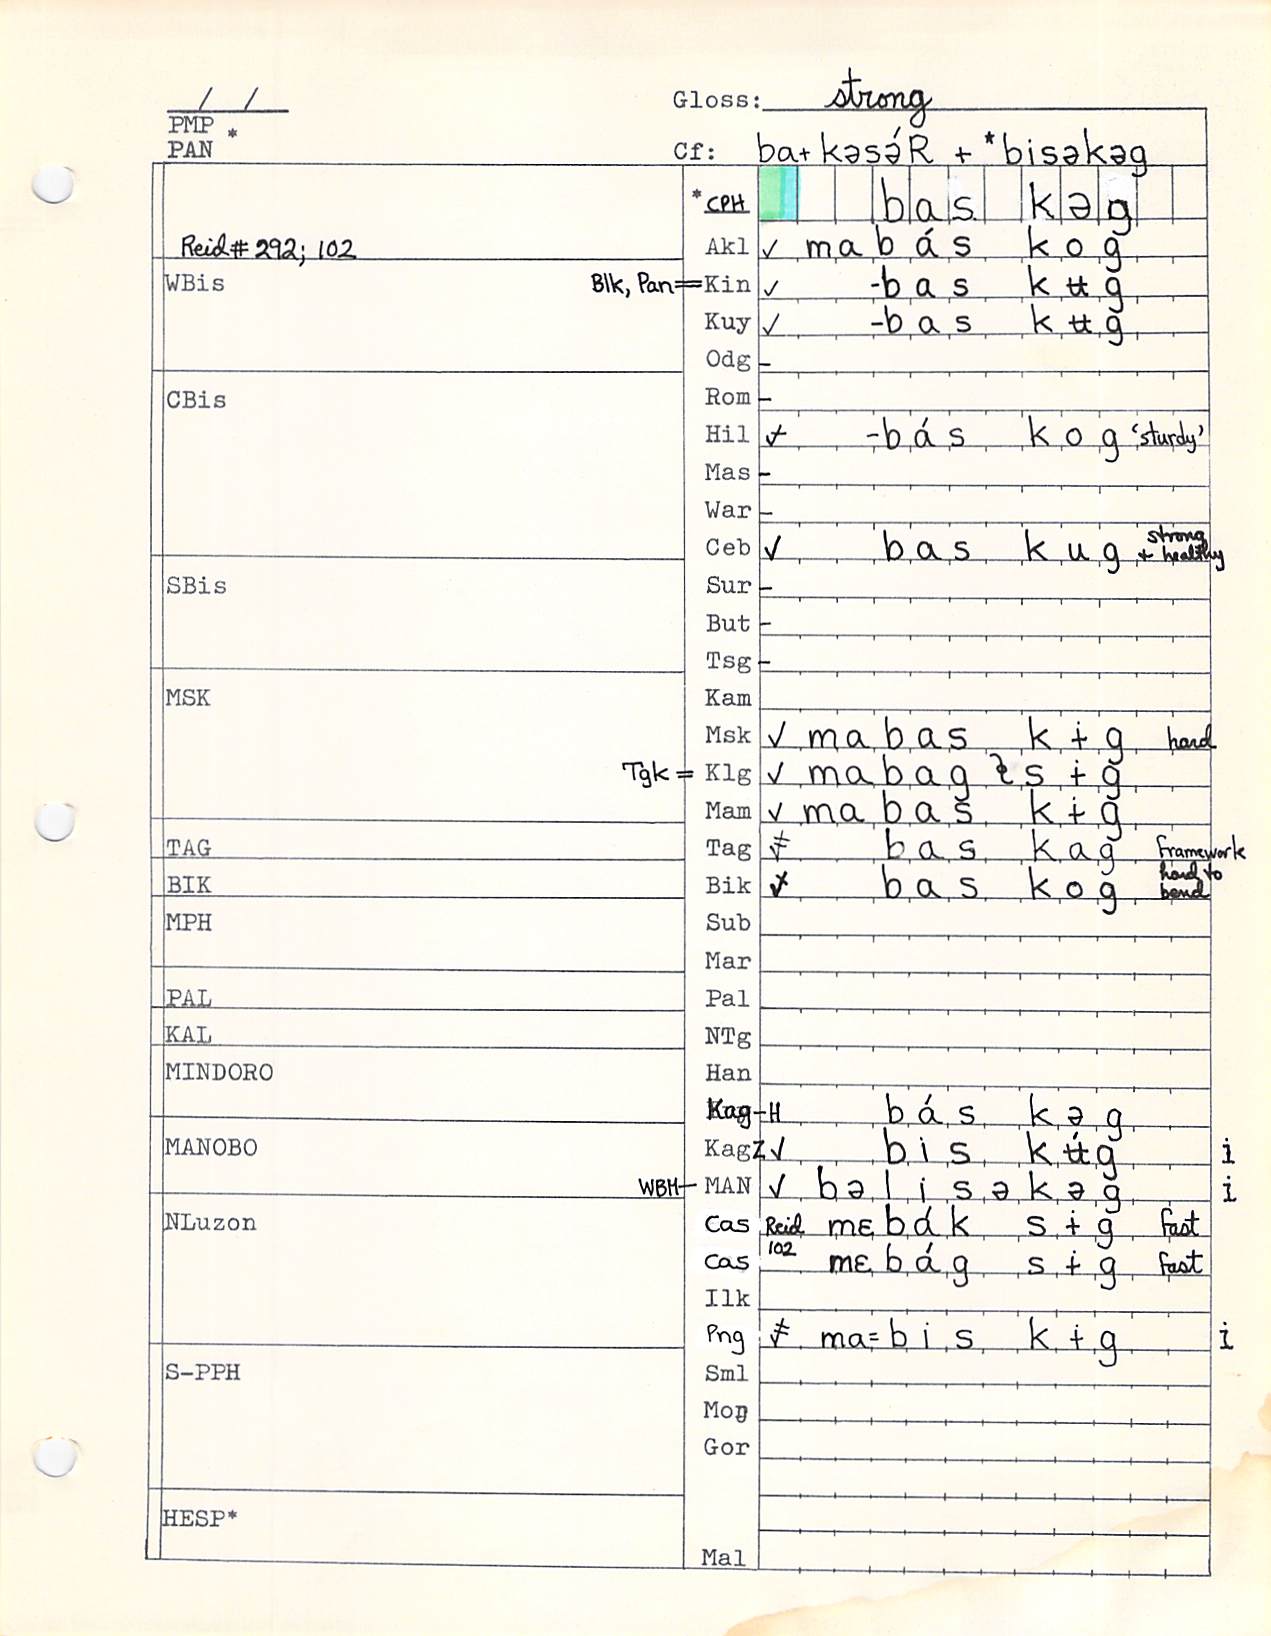 / / Gloss: strong
PMP *
PAN Cf: ba+kəsə́R + *bisəkəg
*CPH bas kəg
Reid # 292; 102 Akl ✓ mabás kog
WBis Blk, Pan = Kin ✓ -bas kʉg
Kuy ✓ -bas kʉg
Odg -
CBis Rom -
Hil ≠ -bás kog ‘sturdy’
Mas -
War -
Ceb ✓ bas kug strong + healthy
SBis Sur -
But -
Tsg -
MSK Kam
Msk ✓ mabas kɨg hard
Tgk = Klg ✓ mabag sɨg
Mam ✓ mabas kɨg
TAG Tag ≠ bas kag framework
BIK Bik bas kog hard to bend
MPH Sub
Mar
PAL Pal
KAL NTg
MINDORO Han
Kag-H bás kəg
MANOBO KagZ ✓ bis kʉ́g i
WBM- MAN ✓ bəlisəkəg i
NLuzon Cas Reid 102 mɛbák sɨg fast
Cas mɛbág sɨg fast
Ilk
Png ≠ ma=bis kɨg i
S-PPH Sml
Moŋ
Gor
HESP*
Mal